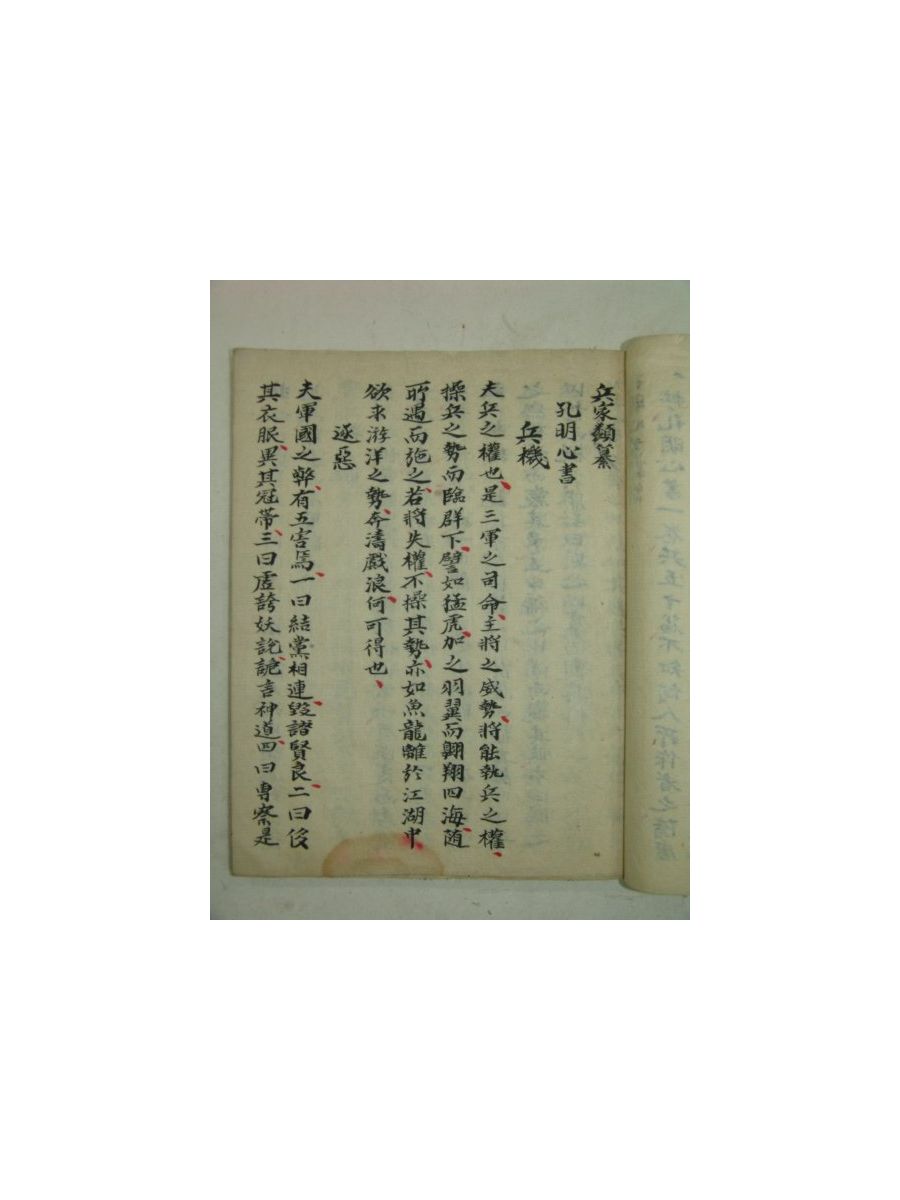 兵家類纂
孔明心書
兵機
夫兵之權也、是三軍之司命、主將之威勢、將能執兵之權、
操兵之勢而臨群下、譬如猛虎、加之羽翼而翱翔四海、随
所遇而施之、若將失權、不操其勢、亦如魚龍離於江湖中
欲求游洋之勢、奔濤戱浪、何可得也、
逐惡
夫軍國之弊、有五害焉、一曰結黨相連、毀譖賢良、二曰侈
其衣服、異其冠帶、三曰虛誇妖說、詭言神道、四、曰專察是